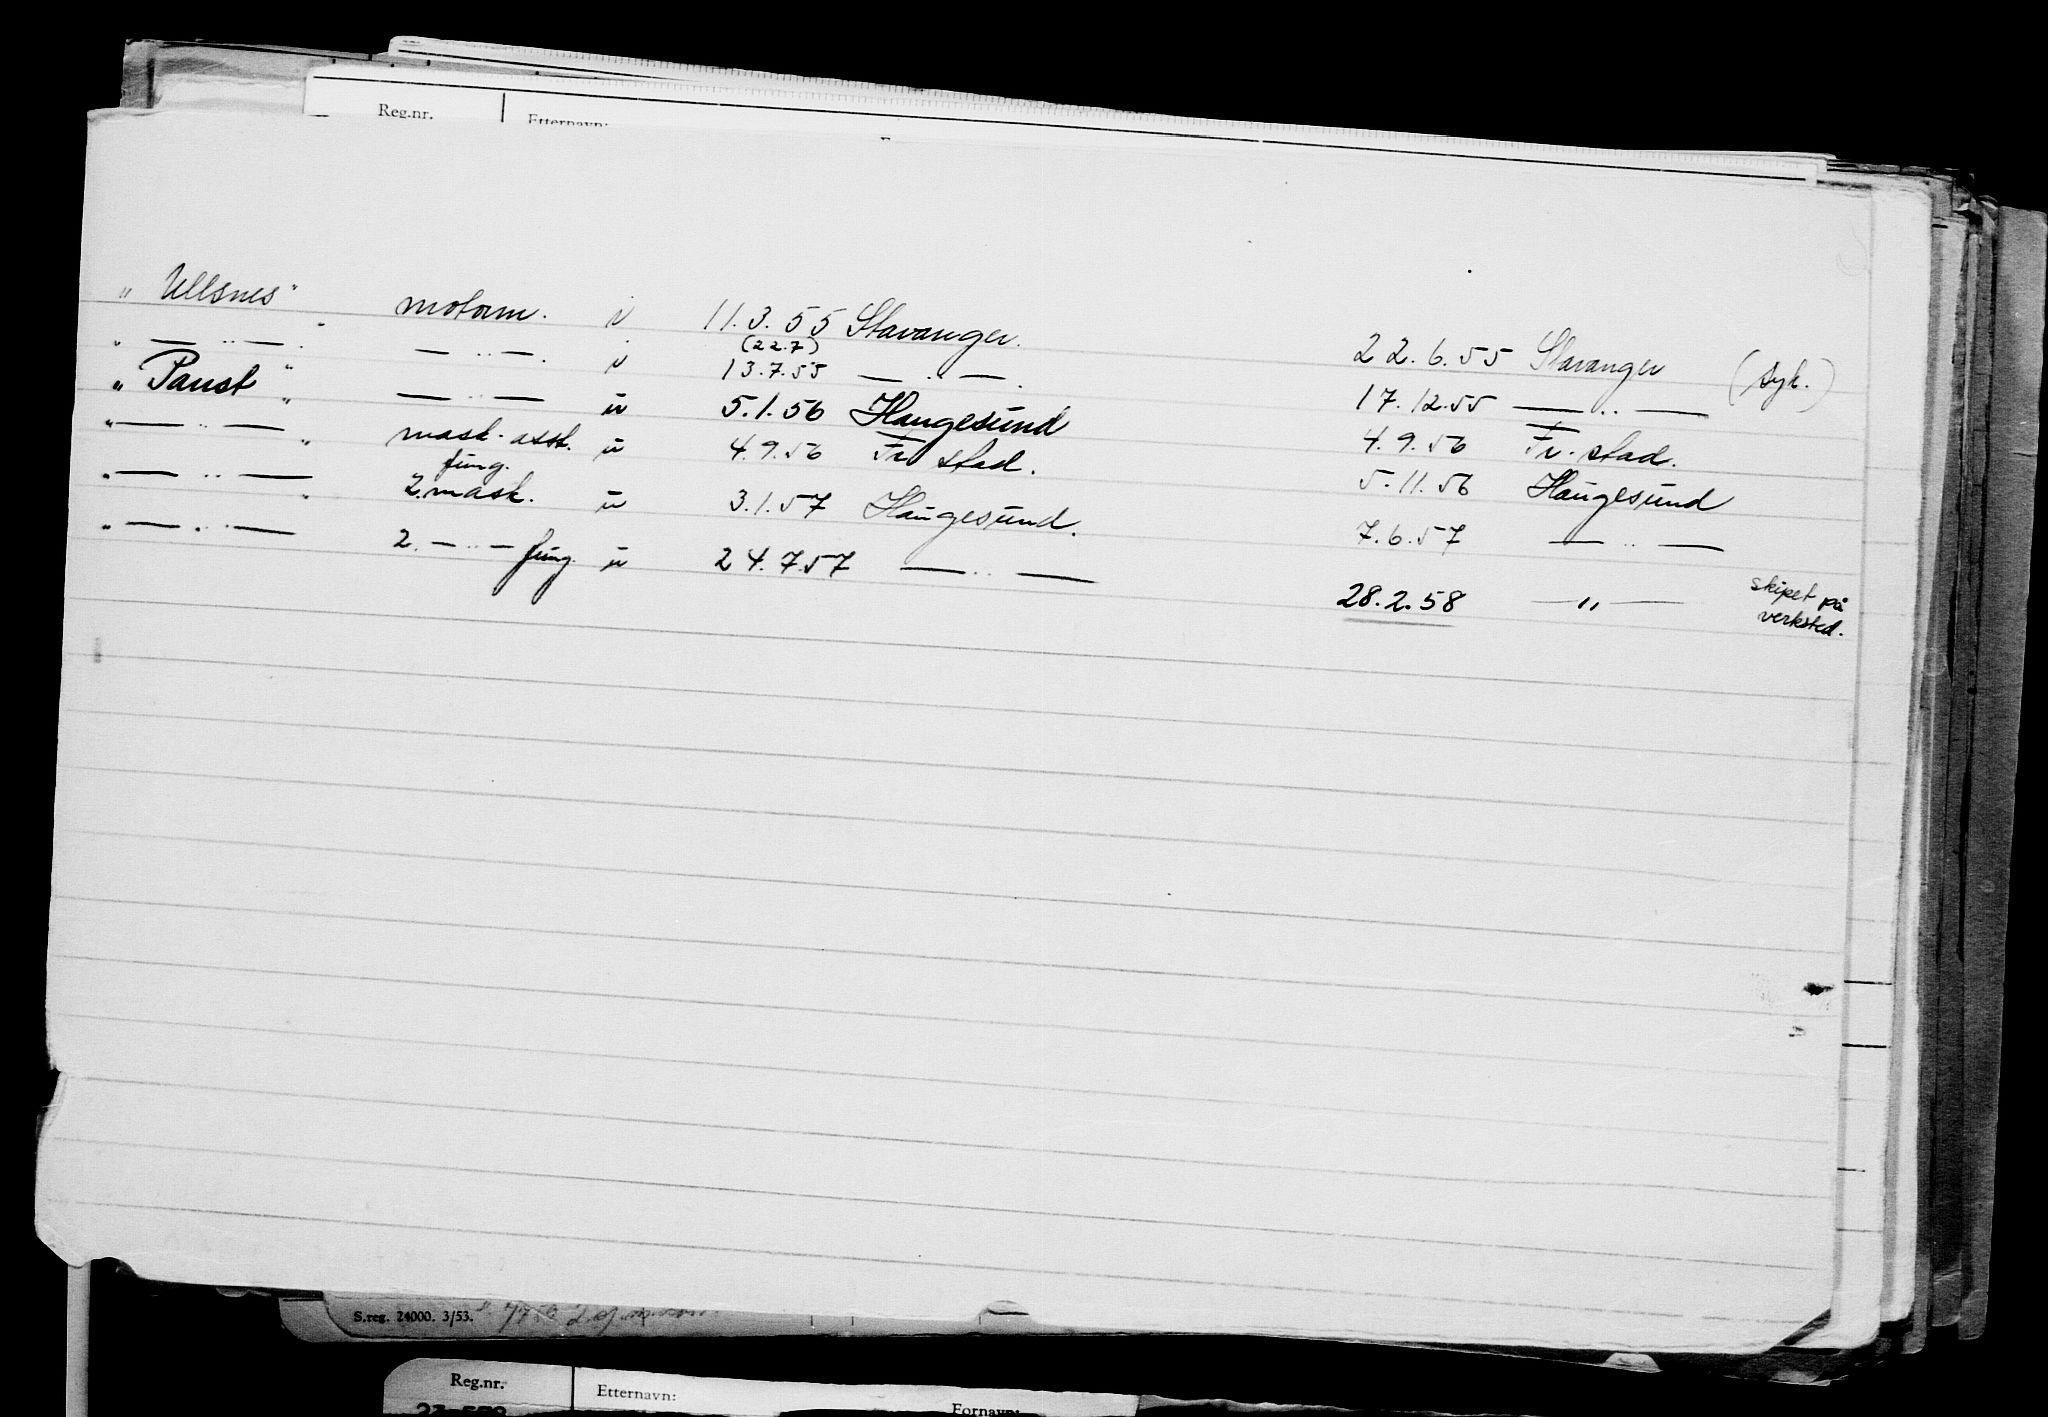 Reg.nr. Etternavn:
„ Ullsnes " motorm. i 11.3.55 Stavanger. 22.6.55 Stavanger (syk.)
„ — „ — . — „ — . i (22.7) 13.7.55 — „ — . 17.12.55 — „ —
„ Paust " — „ — u 5.1.56 Haugesund 4.9.56 Fr. stad.
„ — „ — " mask. asst. u 4.9.56 Fr stad. 5.11.56 Haugesund
„ — „ — " fung. 2. mask. u 3.1.57 Haugesund. 7.6.57 — „ —
„ — „ — 2. — „ — fung. u 24.7.57 — „ — 28.2.58 — „ — skipet på verksted.
S.reg. 24000. 3/53.
Reg.nr. Etternavn: Fornavn: